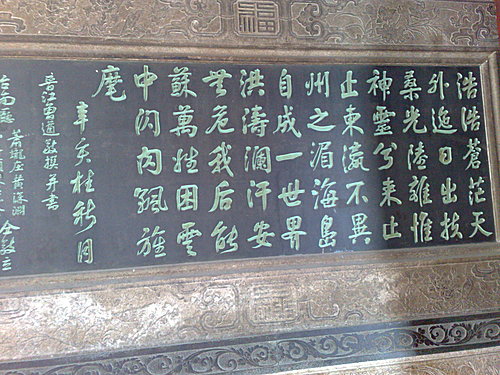 浩浩蒼茫天
外近日出扶
桑光陸離惟
神靈兮来止
止東瀛不異
州之湄海島
自成一世界
洪濤瀾汗安
無危我后能
蘇萬姓困雲
中闪闪飄旌
麾
辛亥桂秋月
晉江曾遒敬撰并書